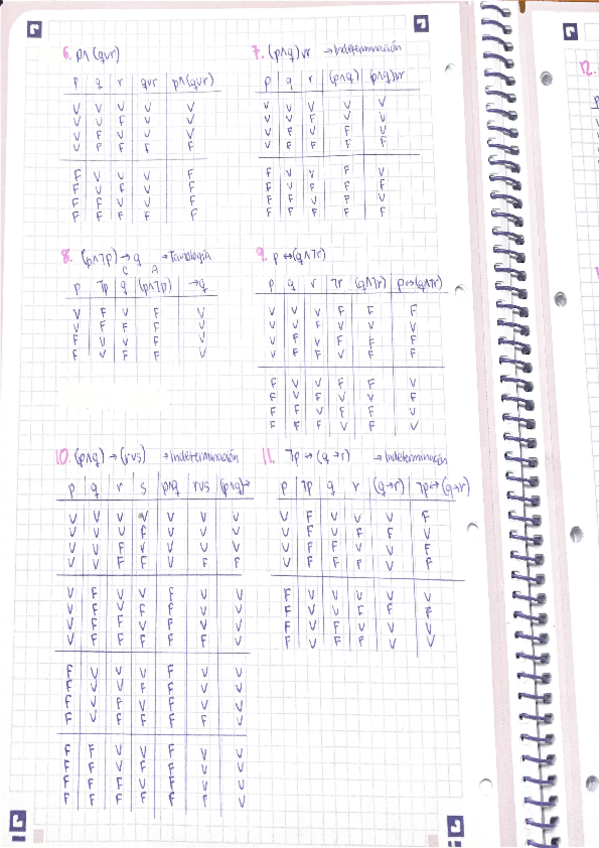 6. p∧(q∨r)
p q r q∨r p∧(q∨r)
V V V V V
V V F V V
V F V V V
V F F F F
F V V V F
F V F V F
F F V V F
F F F F F
7. (p∧q)∨r →Indeterminación
p q r (p∧q) (p∧q)∨r
V V V V V
V V F V V
V F V F V
V F F F F
F V V F V
F V F F F
F F V F V
F F F F F
8. (p∧¬p)→q →Tautología
C A
p ¬p q (p∧¬p) →q
V F V F V
V F F F V
F V V F V
F V F F V
9. p↔(q∧¬r)
p q r ¬r (q∧¬r) p↔(q∧¬r)
V V V F F F
V V F V V V
V F V F F F
V F F V F F
F V V F F V
F V F V V F
F F V F F V
F F F V F V
10. (p∧q)→(r∨s) →Indeterminación
p q r s p∧q r∨s (p∧q)→
V V V V V V V
V V V F V V V
V V F V V V V
V V F F V F F
V F V V F V V
V F V F F V V
V F F V F V V
V F F F F F V
F V V V F V V
F V V F F V V
F V F V F V V
F V F F F F V
F F V V F V V
F F V F F V V
F F F V F V V
F F F F F F V
11. ¬p↔(q→r) →Indeterminación
p ¬p q r (q→r) ¬p↔(q→r)
V F V V V F
V F V F F V
V F F V V F
V F F F V F
F V V V V V
F V V F F F
F V F V V V
F V F F V V
12.